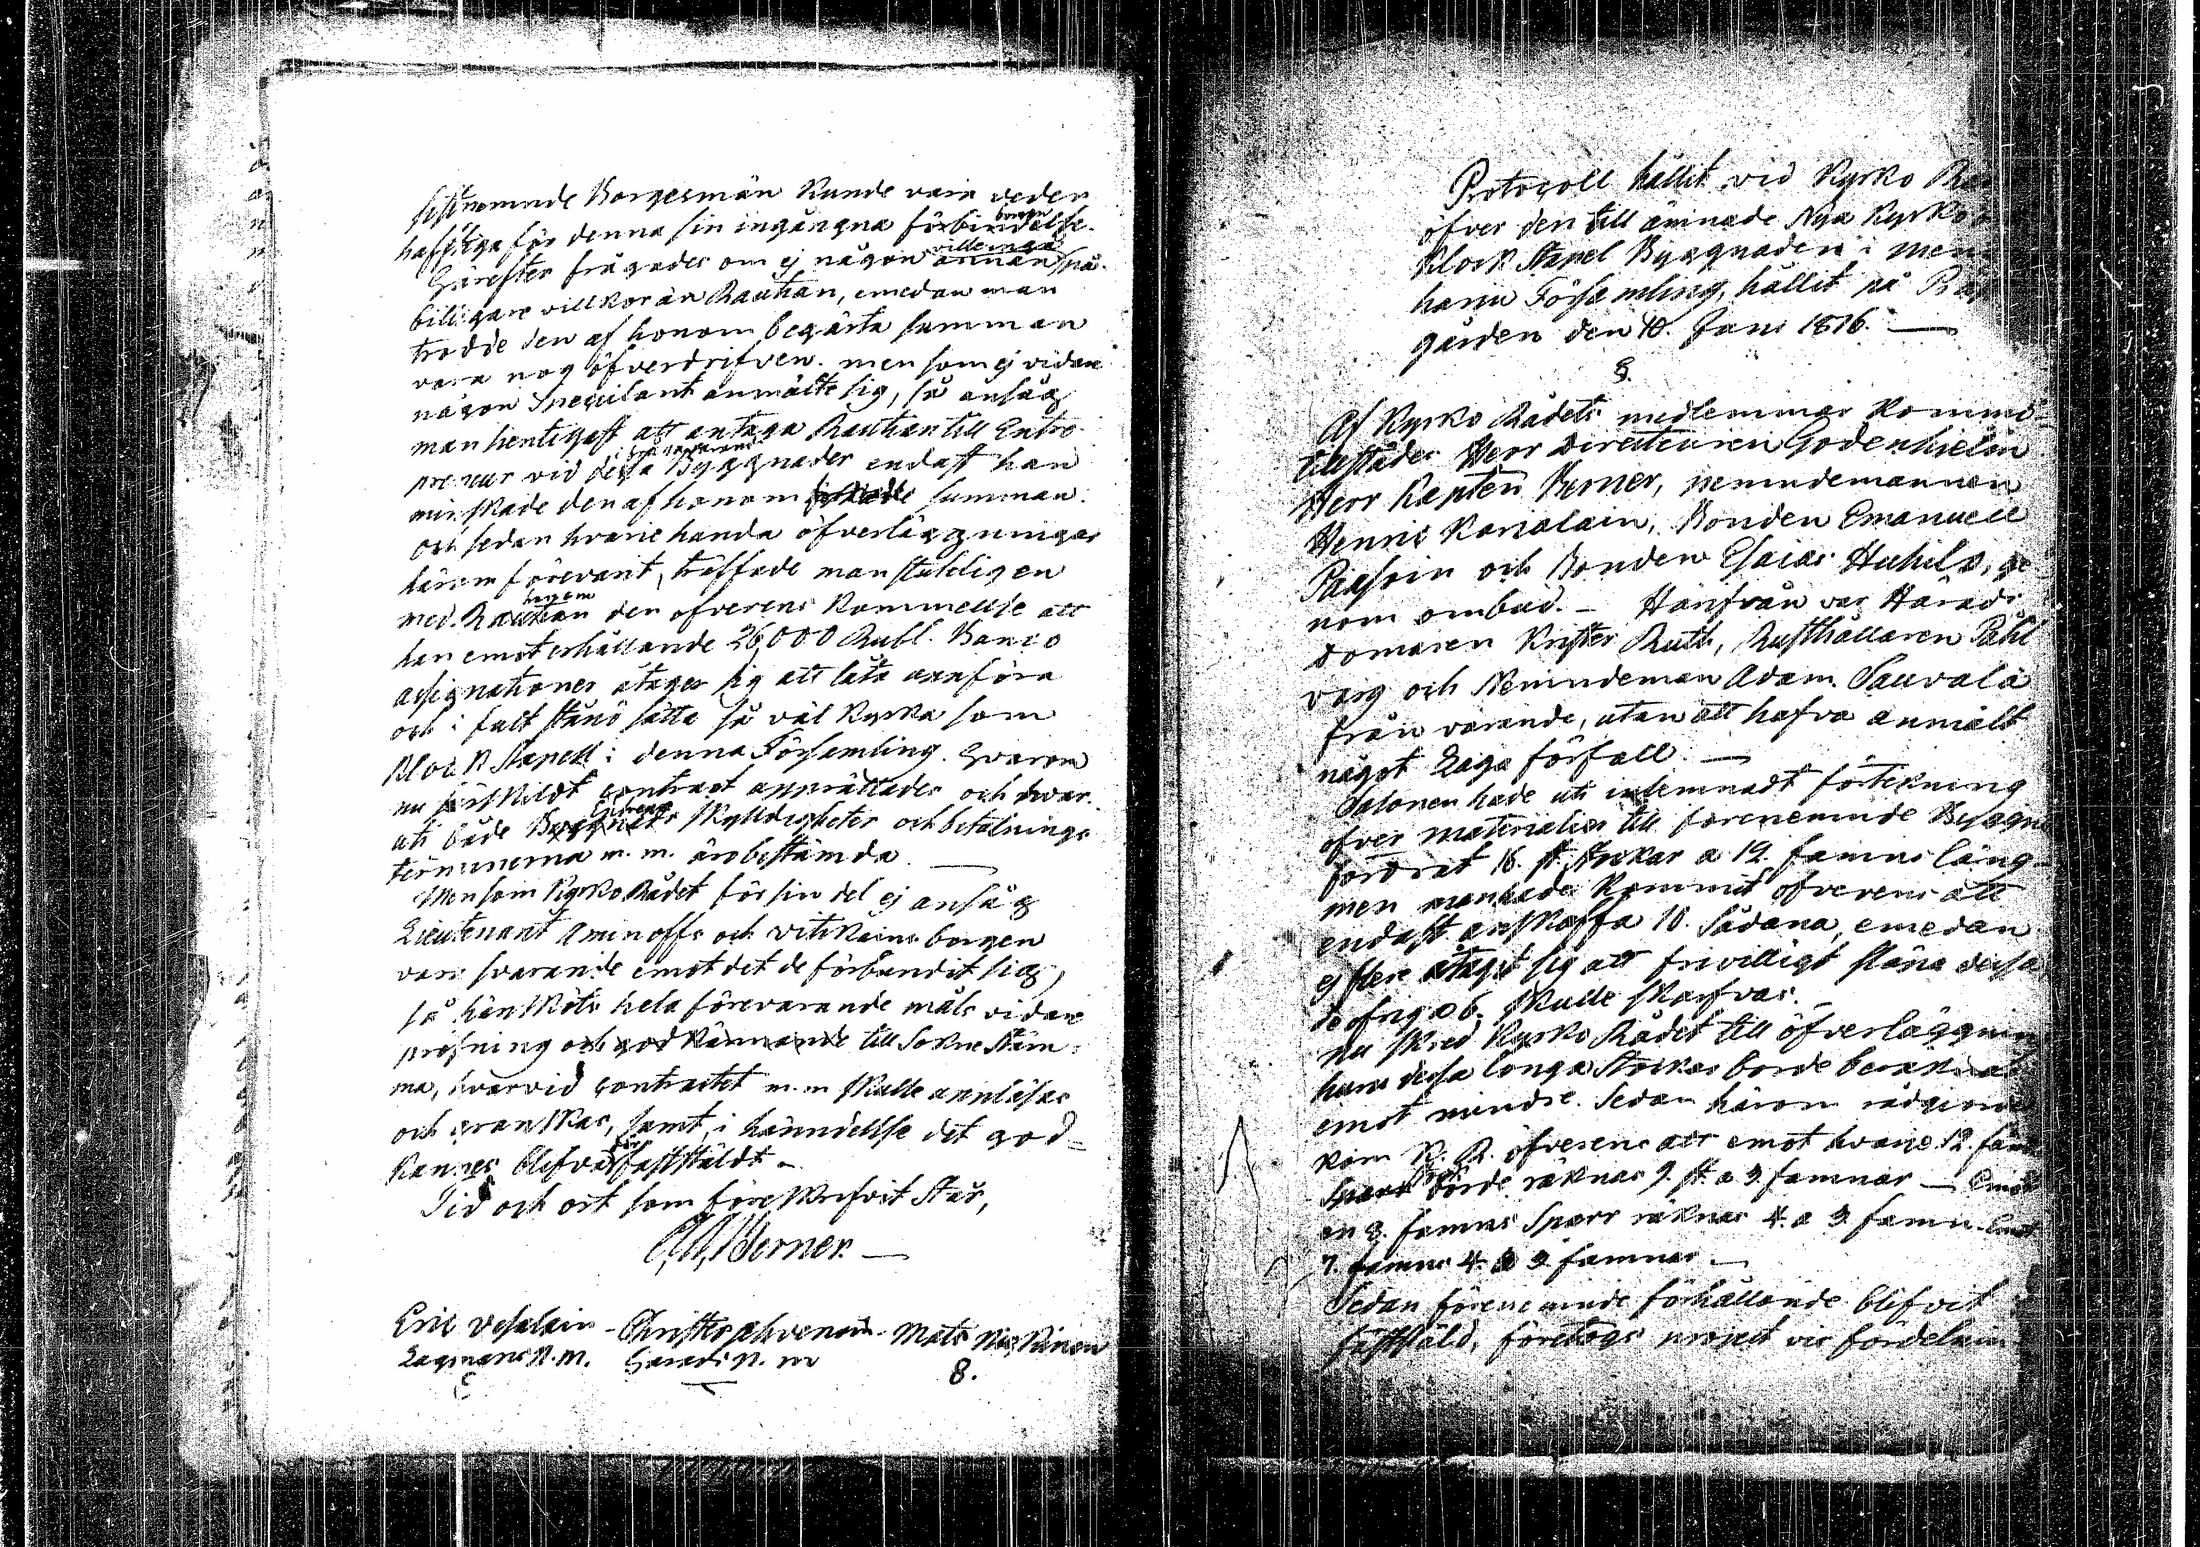 sistnemnde Borgesmän kunde vara veder
häftiga för denna sin ingångna förbindelse.
borgen
Härefter frågades om ej någon annan på
ville ingå
billigare villkor än Rauhan, emedan man
trodde den af honom begärta summan
vara nog öfverdrifven. men som ej vidare
någon Spequlant anmälte sig, så ansåg
man lientegast att antaga Rauhan till Entre-
preneur vid dessa Byggnader endast han
minskade den af honom summan.
och sedan hvarie handa öfverläggningar
härom förevarit, träffade man slutligen
med Rauhan den öfverens kommellse att
honom
han emot erhållande 26,000 Rubl. Banco
assignationer åtager sig att låta uppföra
och i fult stånd sätta så väl kyrka som
Klock Stapell i denna Församling. Hvarom
nu särskildt contract upprättades och hvar-
uti både skylldigheter och betalnings
terminerna m. m. äro bestämda —
Men som Kyrko Rådet för sin del ej ansåg
Lieutenant Aminoffs och vitikains borgen
vara svarande emot det de förbundit sig,
så hänsköts hela förevarande måls vidare
pröfning och godkännande till Sokne Stäm-
ma, hvarvid contractet m. m skulle uppläsas
och granskas, samt, i händellse det god-
kännes blefve fastställdt.
Tid och ort som föreskrefvit står,
Berner. —
Eric Vesalain - Christer Ahvenain - Mats
Lagmans N. M. Harads N. m
8.
Protocoll hållit vid Kyrko
öfver den till ämnade Nya Kyrko
Klock Stapel Byggnaden i
harju Församling, hållit på
gården den 10. Juni 1816. —
§.
Af Kyrko Rådets medlemmar kommo
tillstädes Herr Directeuren Godenhielm
Herr Kapten Berner, nemndemannen
Henric Karialain, Bonden Emanuell
Pausoin och Bonden Esaias Huhila, ge
nom ombud. — Härifrån var Härads
domaren Krister Ruth, Rusthållaren Påhl
varg och Nemndeman Adam Sauvala
från varande, utan att hafva anmält
något Laga förfall —
Salonen hade uti inlemnadt förtekning
öfver materialier till förenemnde
fordrat 16. st. stockar a 12. famns läng-
men man hade kommit öfverens att
endast anskaffa 10. sådana, emedan
ej flere åtagit sig att frivilligt
de öfriga 6. skulle skarfvas. —
nu skred Kyrko Rådet till öfverläggnin
huru dessa långa Stockar borde beräknas
emot mindre. Sedan härom
kom K. R. öfverens att emot hvarie 12. fam
Sparr borde räknas 9. st. a 3 famnar —
en 9. famns Sparr räknas 4. a 3. famn.
7. famns 4. a 3 famnar —
Sedan förenemnde förhållande blifvit
fastställd, företogs project vie fördelnin